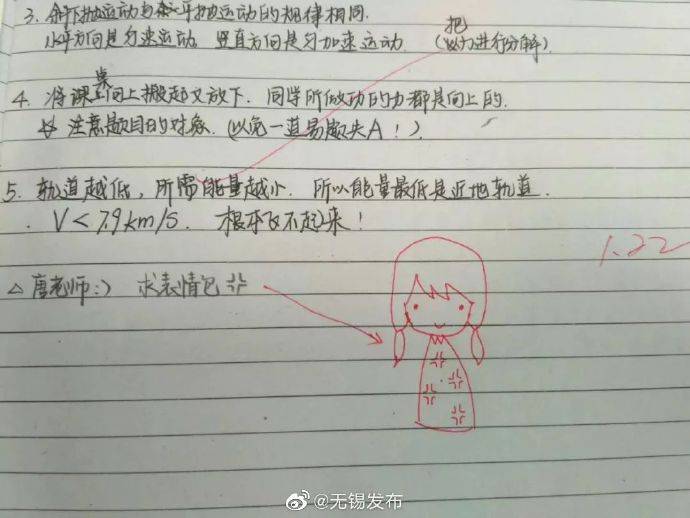 3. 斜下抛运动与水平抛运动的规律相同.
水平方向是匀速运动. 竖直方向是匀加速运动. (把力进行分解).
4. 将课桌向上搬起又放下. 同学所做功的力都是向上的.
注意题目的对象. (以免一道易题失A!).
5. 轨道越低, 所需能量越小. 所以能量最低是近地轨道.
V<7.9km/s. 根本飞不起来!
1.22
△唐老师:) 求表情包
@无锡发布